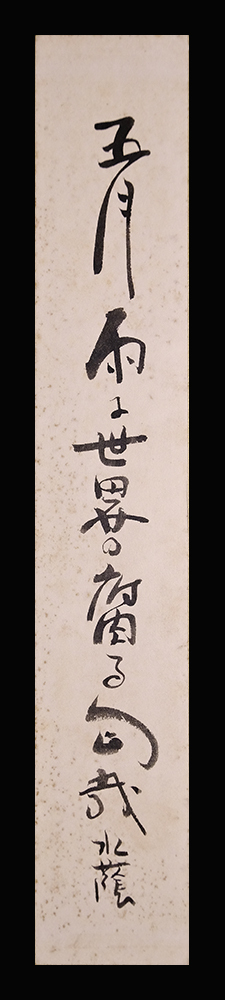 五月雨に世界の腐る匂哉 水蔭